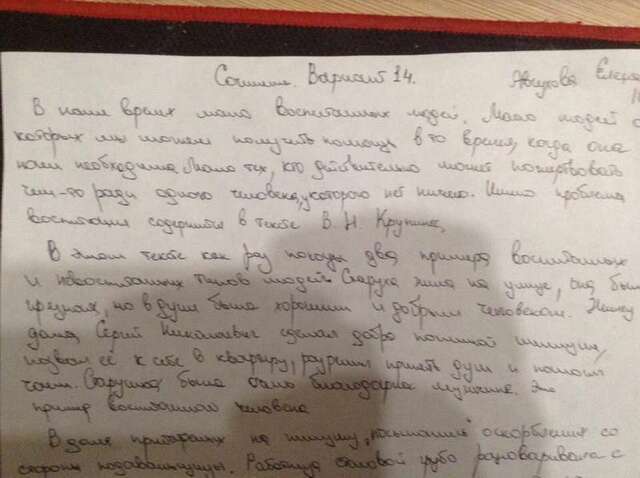 Сочинение. Вариант 14.
В наше время мало воспитанных людей. Мало людей с
которых мы можем получить помощь в то время, когда она
нам необходима. Мало тех, кто действительно может пожертвовать
чем-то ради одного человека, у которого нет ничего. Именно проблема
воспитания содержится в тексте В. Н. Крупина.
В этом тексте как раз показан два примера воспитанных
и невоспитанных типов людей. Старуха жила на улице, она была
грязная, но в душе была хорошим и добрым человеком.
Сергей Николаевич сделал добро пожилой женщине,
позвал её к себе в квартиру, разрешил принять душ и попить
чаю. Старушка была благодарна мужчине. Это
пример воспитанного человека
В доме на женщину, оскорбления со
стороны подавальщицы. Работница столовой грубо разговаривала с